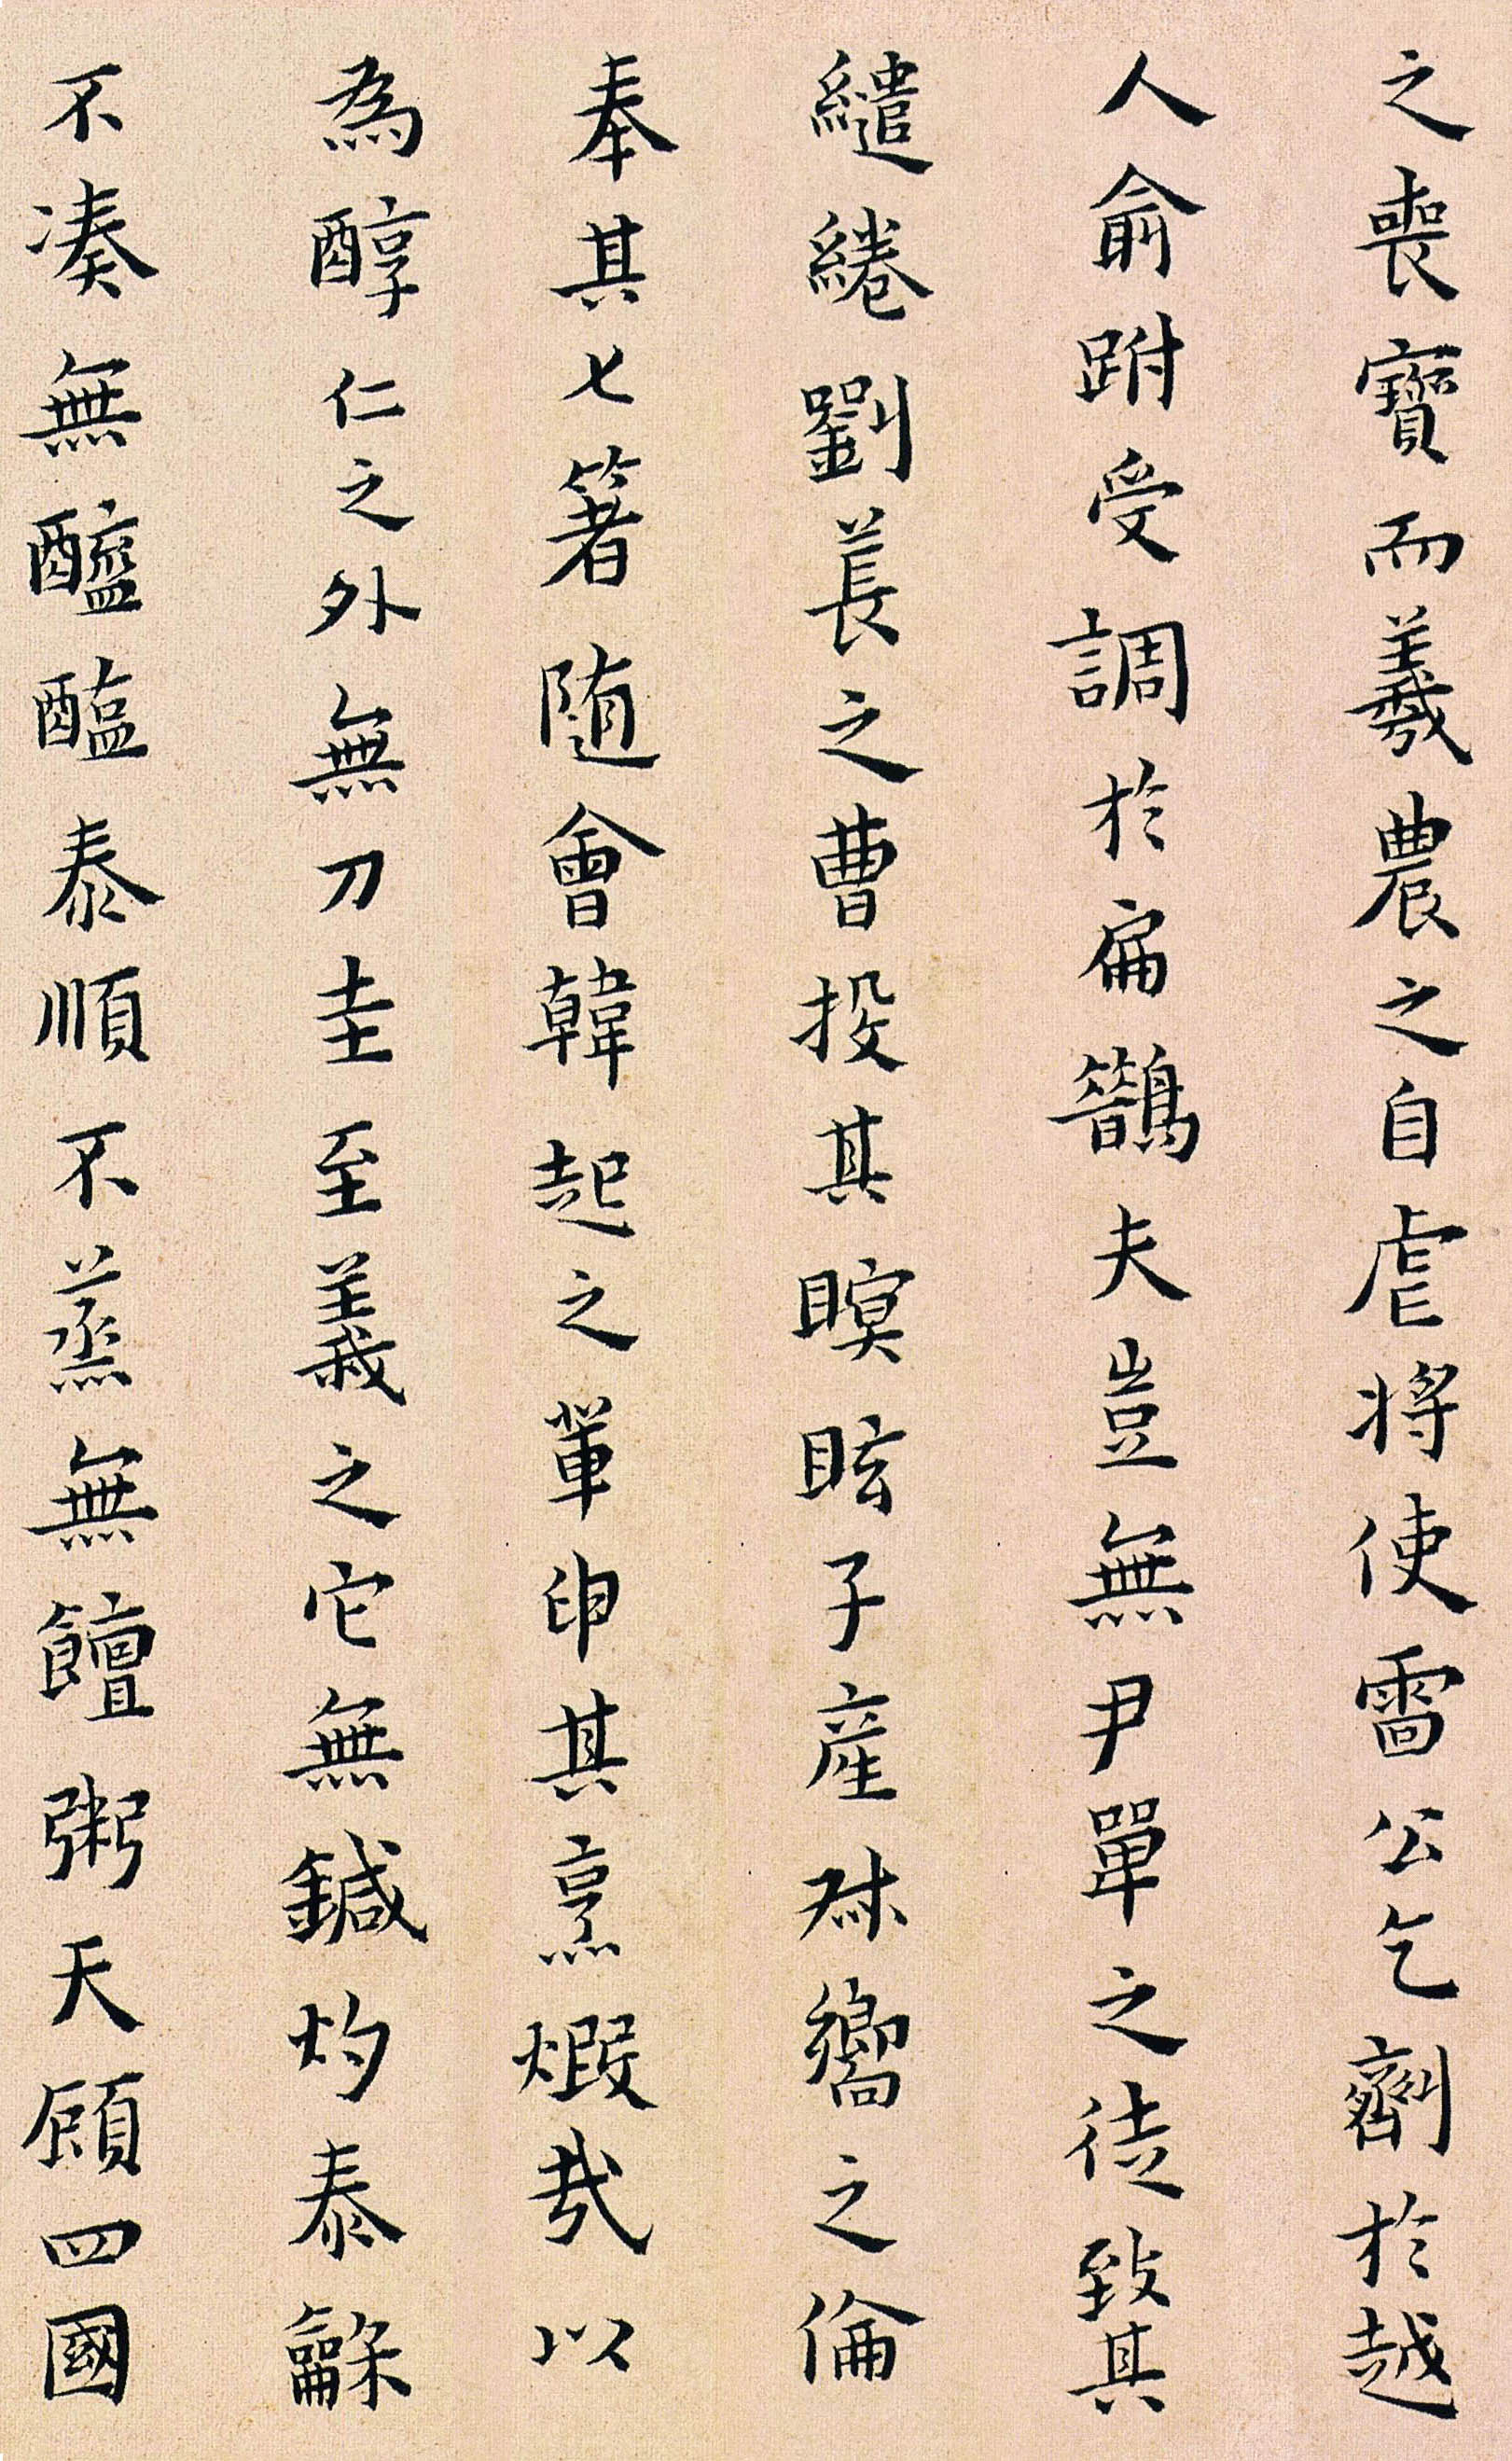 之喪寶而羲農之自虐將使雷公乞劑於越
人俞跗受調於扁鵲夫豈無尹單之徒致其
繾綣劉萇之曹投其瞑眩子產叔嚮之倫
奉其匕箸随會韓起之輩申其烹煆哉以
為醇仁之外無刀圭至義之它無鍼灼泰龢
不凑無醯醢泰順不蒸無饘粥天顧四國